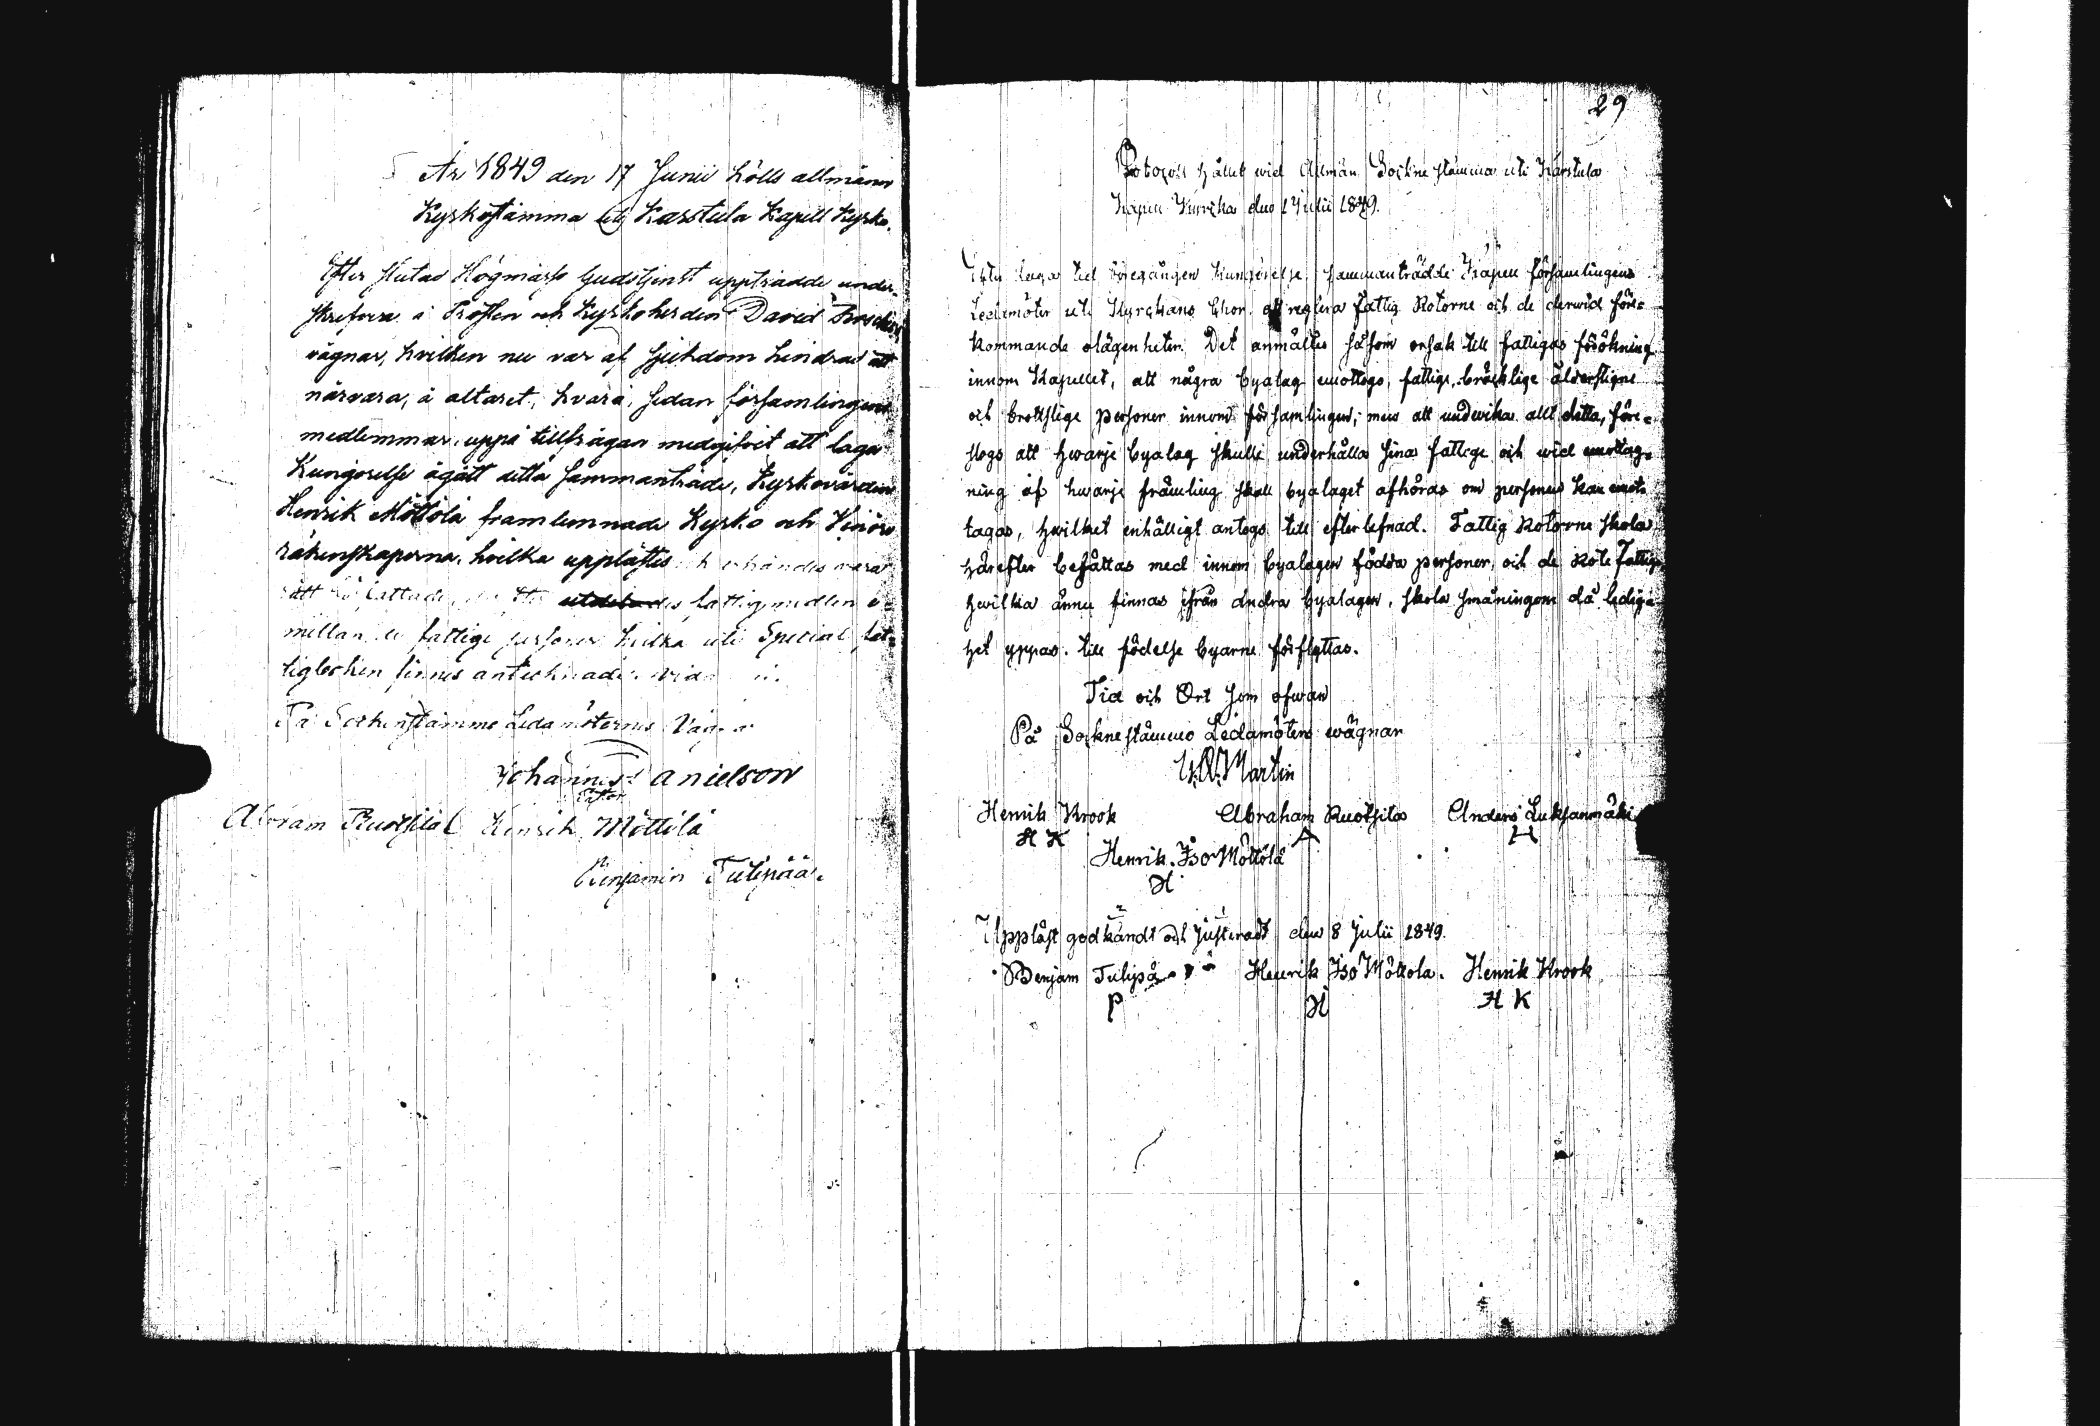 År 1849 den 17 Junii hölls allmänn
Kyrkostämma uti Karstula Kapell Kyrka.
Efter slutad Högmässo Gudstjenst uppträdde under-
skrefven i Prosten och Kyrkoherden David
vägnar, hvilken nu var af sjukdom hindrad att
närvara, å altaret, hvarå, sedan församlingens
medlemmar, uppå tillfrågan medgifvit att laga
Kungörelse ågått detta sammanträde, Kyrkovärden
Henrik Möttölä framlemnade Kyrko och
räkenskaperna, hvilka upplästes
rätt fattade, fattigmedlen e-
mellan de fattige personer hvilka uti Special fat-
tigboken finnes antecknade
På Sockenstämmo Ledamöternes Vägnar
Johannes Danielson
Pastor
Abram Ruotsila Henrik Möttölä
Benjamin Tulipää.
29
Protocoll hållit wid Allmän Sockne stämma uti Karstula
Kapell Kurrcka den 1 Julii 1849.
Efter laga tid föregången Kungörelse sammanträdde Kapell församlingens
Ledamöter uti Kyrckans Chor att reglera fattig Rotorne och de derwid före-
kommande olägenheter. Det anmältes såsom orsak till fattigas förökning
innom Kapellet, att några byalag emottogo, fattige, bräcklige ålderstigne
och brottslige personer innom församlingen, men att undwika allt detta, före-
slogs att hwarje byalag skulle underhålla sina fattige och wid emottag-
ning af hwarje främling skall byalaget afhöras om personen kan emot-
tagas, hwilket enhälligt antogs till efterlefnad. Fattig Rotorne skola,
härefter befattas med innom byalagen födda personer, och de Rote Fattige
hwilka ännu finnas ifrån andra byalagen, skola småningom då ledig-
het yppas till födelse byarne förflyttas.
Tid och Ort som ofwan
På Sockne stämmo Ledamöters wägnar
Martin
Henrik Krook Abraham Ruotsila Anders Luksanmäki
H K A H
Henrik Iso Möttölä
H
Uppläst godkändt och justeradt den 8 Julii 1849.
Benjam Tulipä Henrik Iso Möttola. Henrik Krook
P H H K